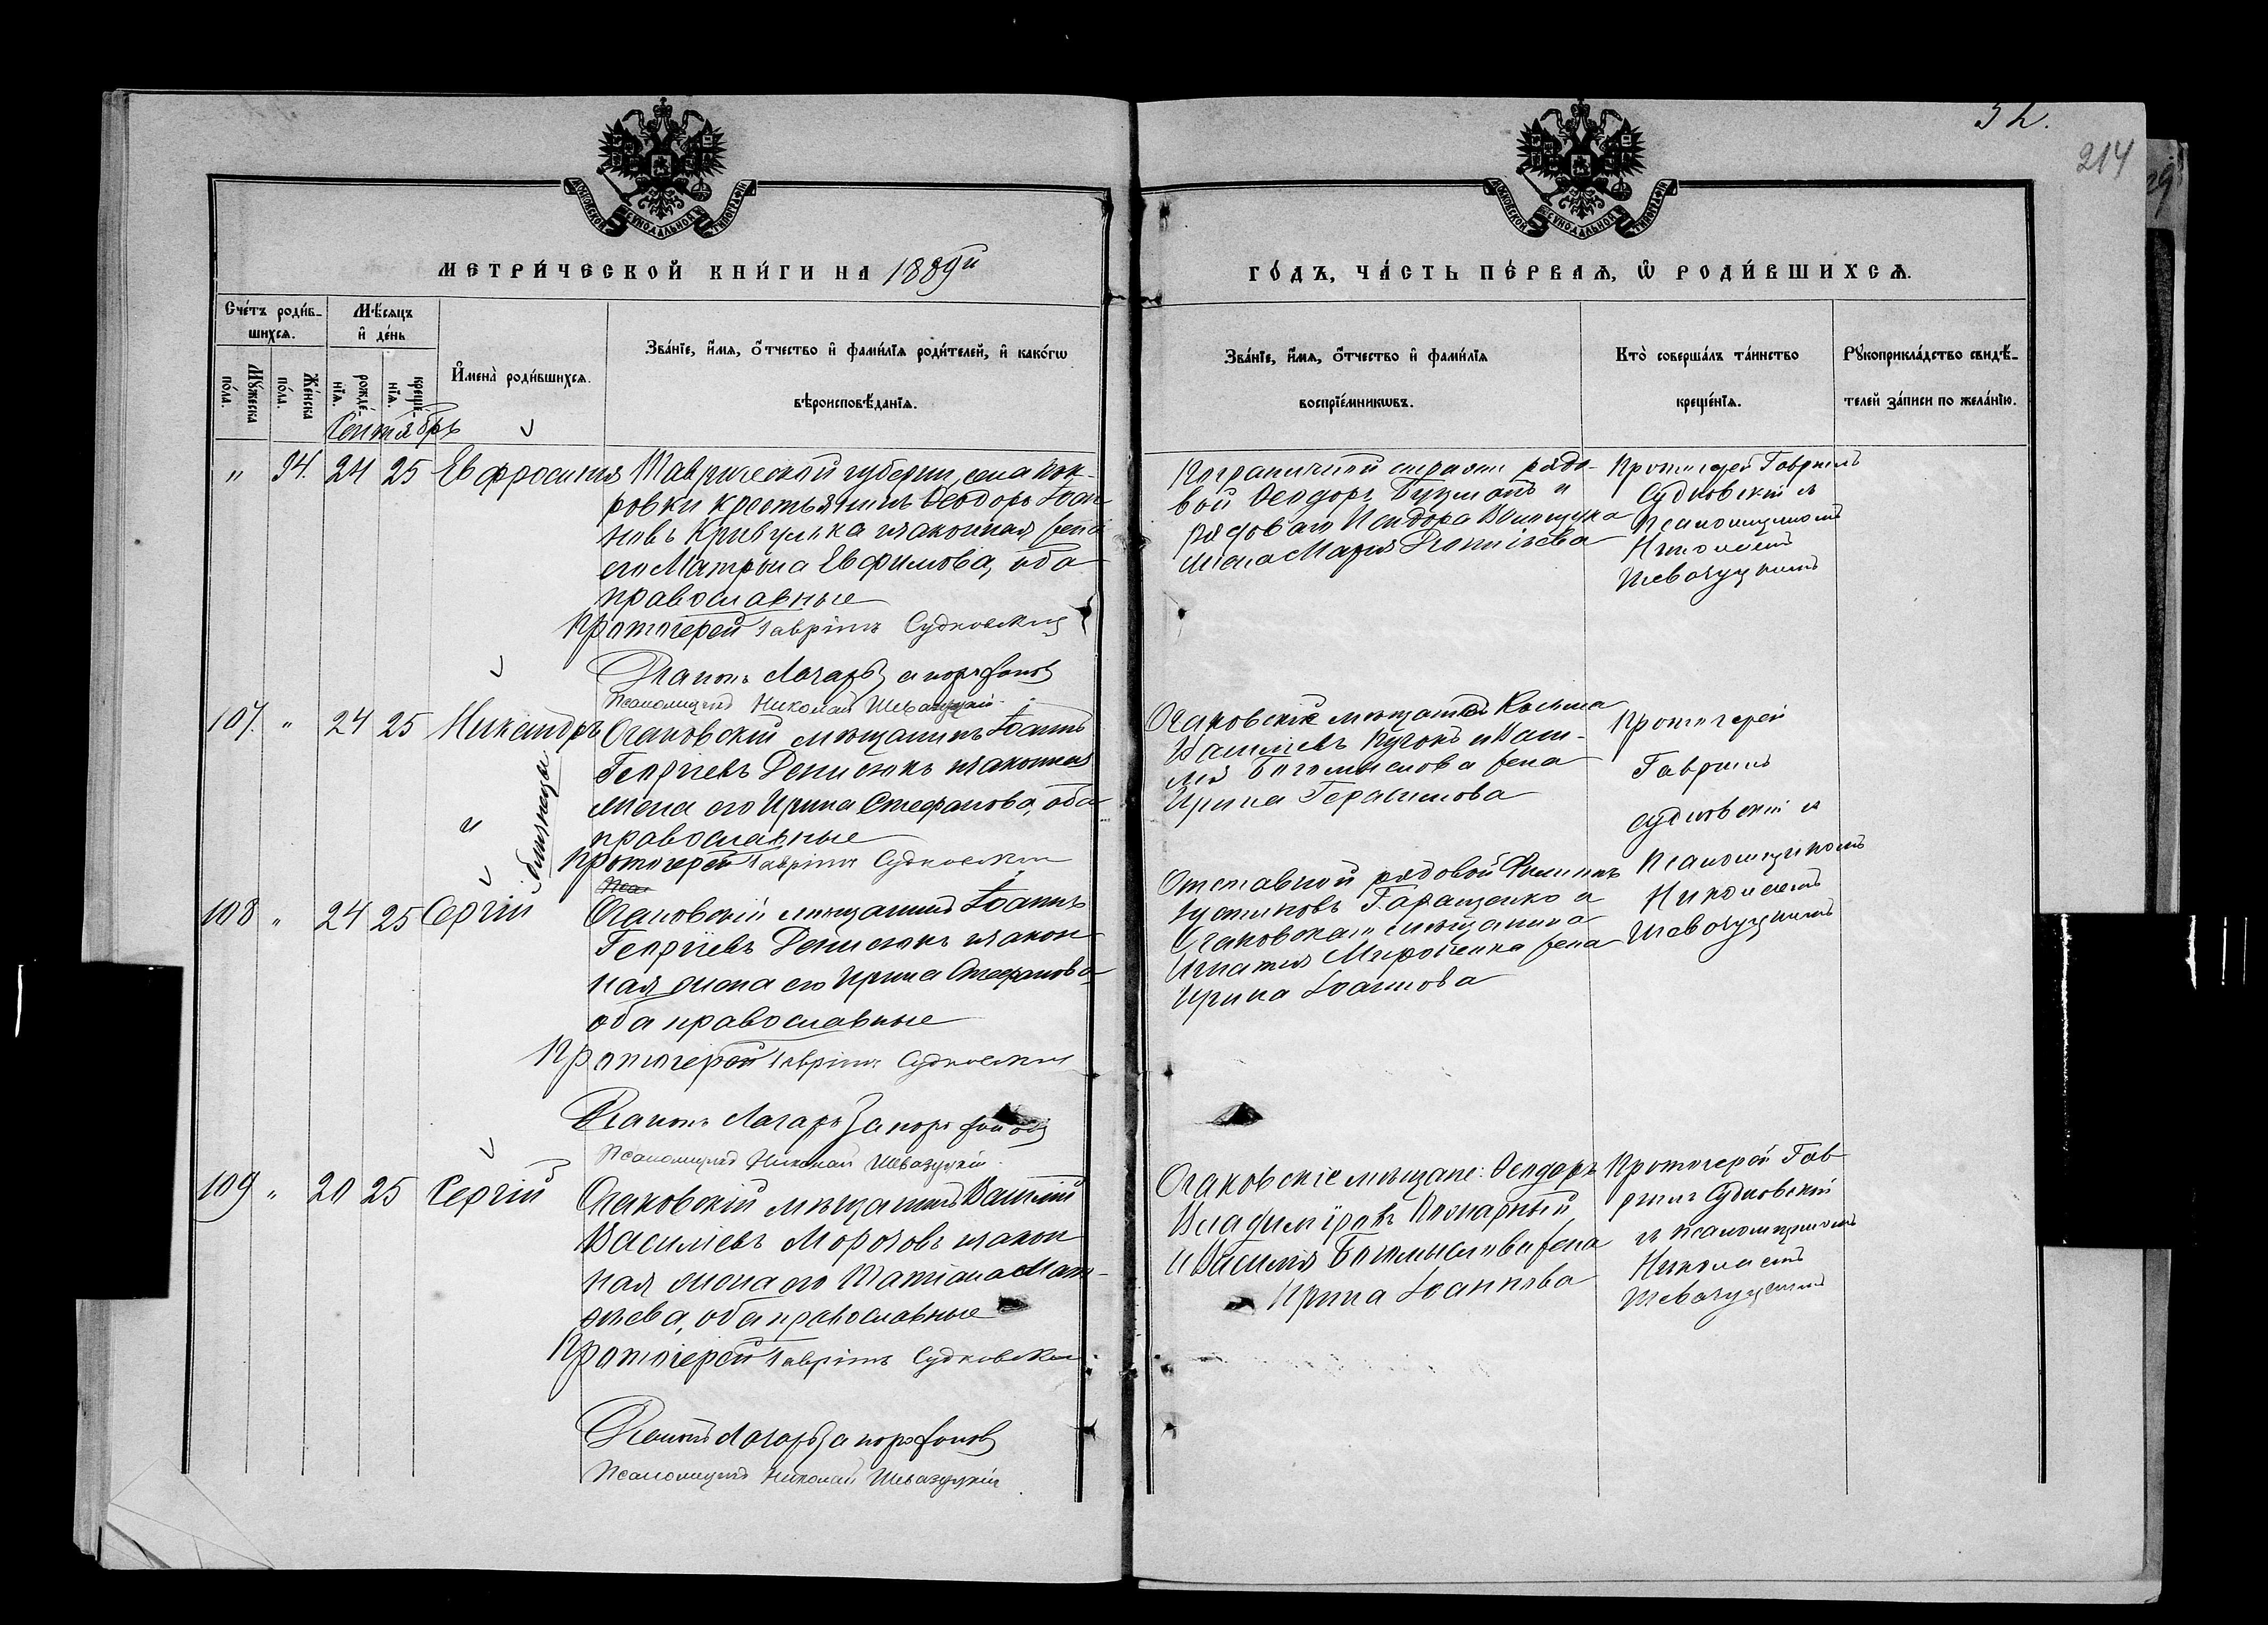 32.
214
МОСКОВСКОЙ СѴНОДАЛЬНОЙ ТИПОГРАФІИ
МОСКОВСКОЙ СѴНОДАЛЬНОЙ ТИПОГРАФІИ
МЕТРИ́ЧЕСКОЙ КНИ́ГИ НА 1889й
ГО́ДЪ, ЧА́СТЬ ПЕ́РВАѦ, Ѽ РОДИ́ВШИХСѦ.
Сче́тъ роди́в-
шихсѧ.
Мѣ́сѧцъ
и҆ де́нь
Мꙋ́жеска
по́ла.
Же́нска
по́ла.
рожде́-
нїѧ.
креще́-
нїѧ.
И҆мена̀ роди́вшихсѧ.
Зва́нїе, и҆́мѧ, о҆́тчество и҆ фами́лїѧ роди́телей, и҆ како́гѡ
вѣроисповѣ́данїѧ.
Зва́нїе, и҆́мѧ, о҆́тчество и҆ фами́лїѧ
воспрїе́мникѡвъ.
Кто̀ соверша́лъ та́инство
креще́нїѧ.
Рꙋкоприкла́дство свидѣ́-
телей за́писи по жела́нїю.
Сентябрь
" 94. 24 25 Евфросинія Таврической губерніи села Пок-
ровки крестьянинъ Ѳеодоръ Іоан-
новъ Кривулька и законная жена
его Матрона Евфимова, оба
православные
Протоіерей Гавріилъ Судковскій
Діаконъ Лазарь Запорожонов
Псаломщикъ Николай Швазуцкій
Пограничной стражи рядо-
вой Ѳеодоръ и
рядоваго Исидора
жена Марія
Протоіерей Гавріилъ
Судковскій съ
Псаломщикомъ
Николаемъ
Швазуцкимъ
107. " 24 25 Никандръ Очаковскій мѣщанинъ Іоаннъ
Георгіевъ Денисюкъ и законная
жена его Ирина Стефанова, оба
православные
Протоіерей Гавріилъ Судковскій
и
близнецы
Очаковскіе мѣщане Козьма
Василіевъ и Васи-
лія Богомыслова жена
Ирина Герасимова
Протоіерей
Гавріилъ
Судковскій съ
Псаломщикомъ
Николаемъ
Швазуцкимъ
108 " 24 25 Сергій Очаковскій мѣщанинъ Іоаннъ
Георгіевъ Денисюкъ и закон
ная жена его Ирина Стефанова
оба православные
Протоіерей Гавріилъ Судковскій
Діаконъ Лазарь Запорожонов
Псаломщикъ Николай Швазуцкій
Отставной рядовой Филиппъ
Устиновъ Таращенко и
Очаковскаго мѣщанина
Игнатія Мироненка жена
Ирина Іоаннова
109 " 20 25 Сергій Очаковскій мѣщанинъ Василій
Василіевъ Морозовъ и закон
ная жена его Татіана Мат-
ѳѣева, оба православные
Протоіерей Гавріилъ Судковскій
Діаконъ Лазарь Запорожонов
Псаломщикъ Николай Швазуцкій
Очаковскіе мѣщане: Ѳеодоръ
Владиміровъ
и Василія Богомыслова жена
Ирина Іоаннова
Протоіерей Гав-
ріилъ Судковскій
съ псаломщикомъ
Николаемъ
Швазуцкимъ